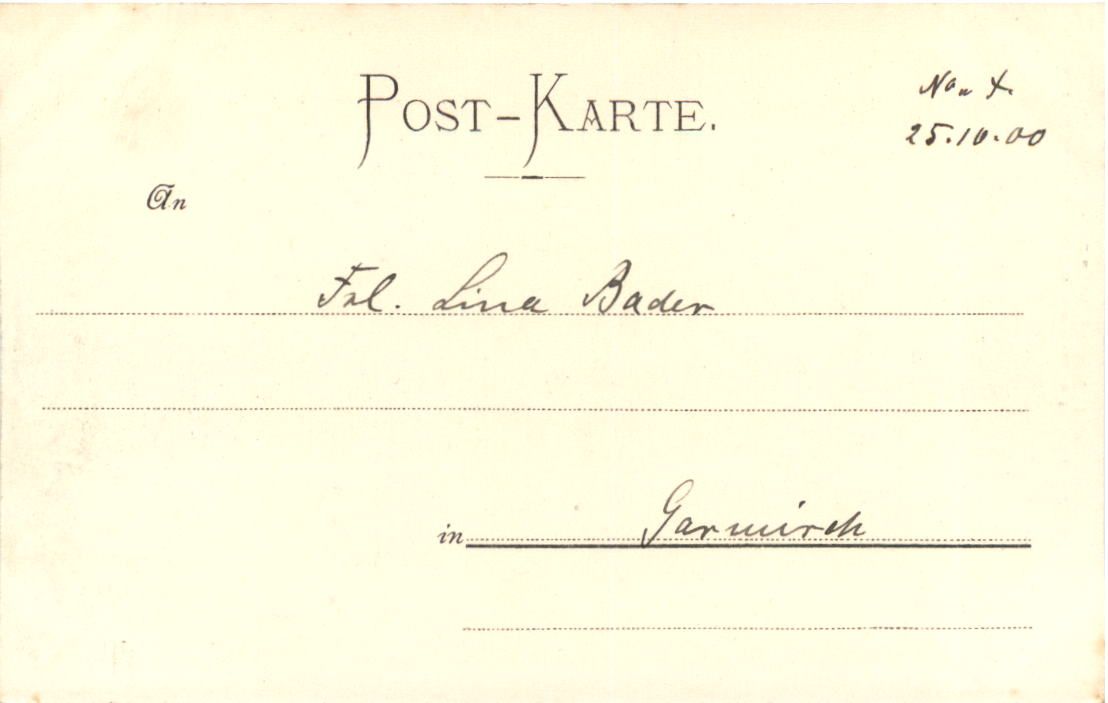 POST-KARTE.
25.10.00
An
Frl. Lina Bader
in Garmisch